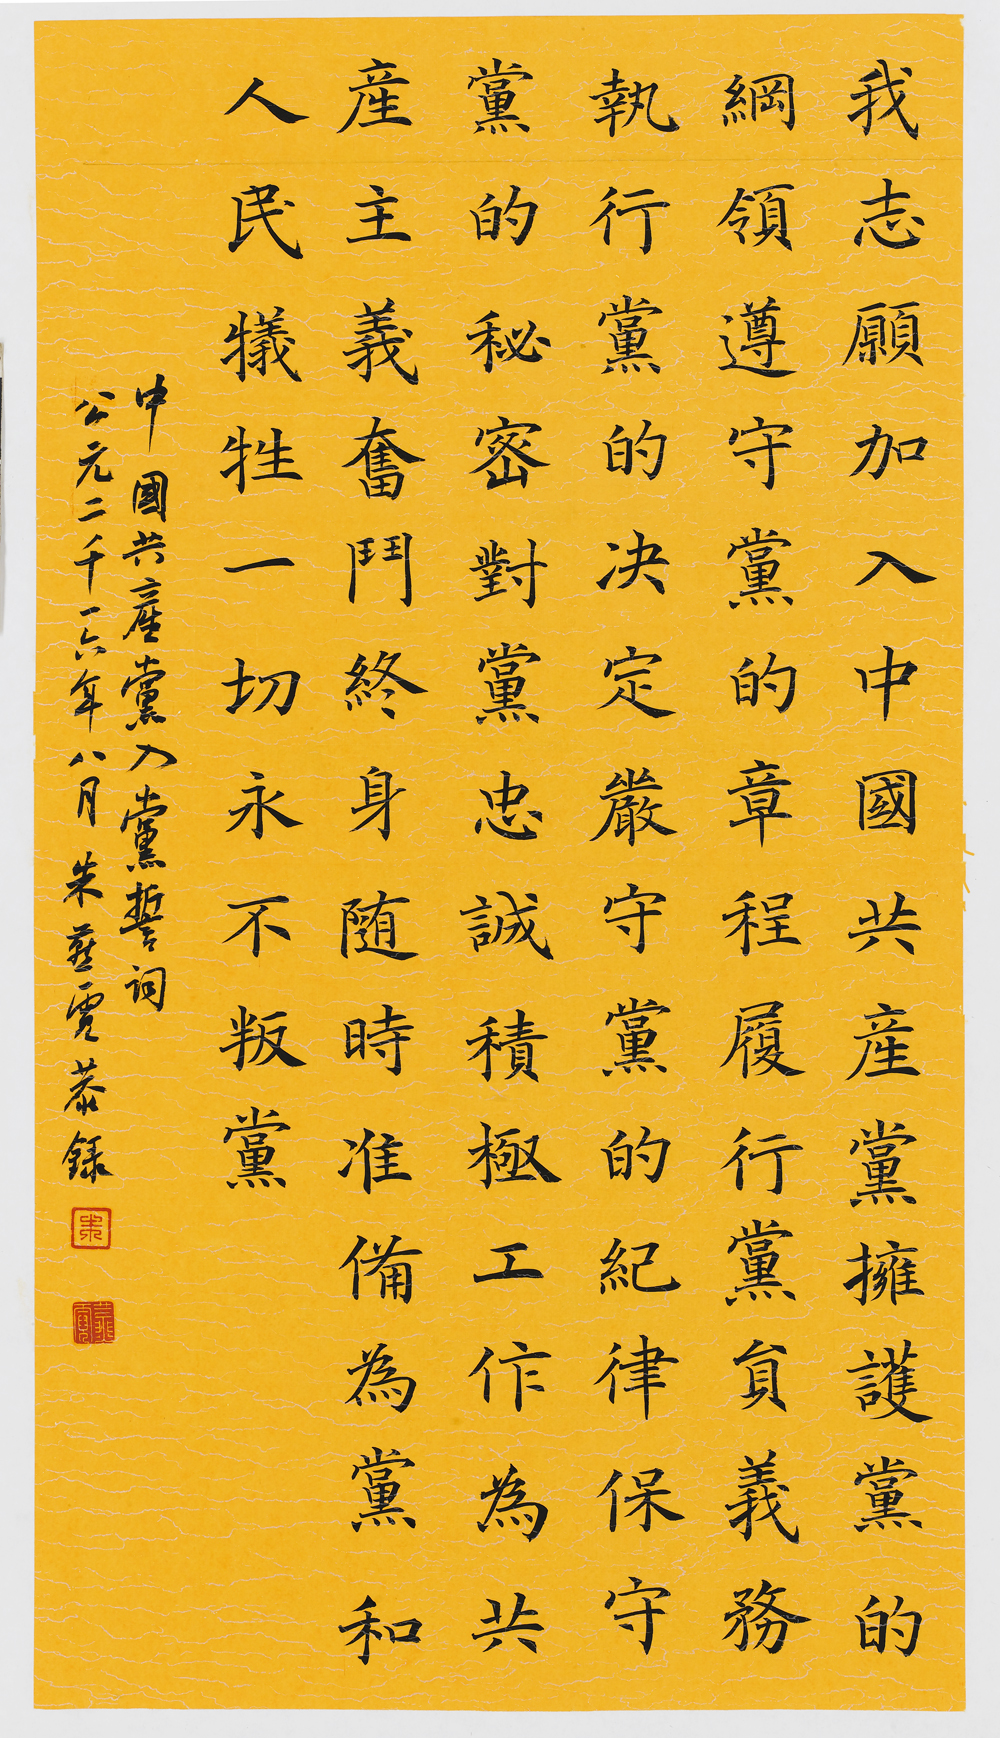 我志願加入中國共産黨擁護黨的
綱領遵守黨的章程履行黨貟義務
執行黨的决定嚴守黨的紀律保守
黨的秘密對黨忠誠積極工作為共
産主義奮鬥終身随時准備為黨和
人民犠牲一切永不叛黨
中國共産黨入黨誓詞
公元二千一六年八月 朱恭録
朱